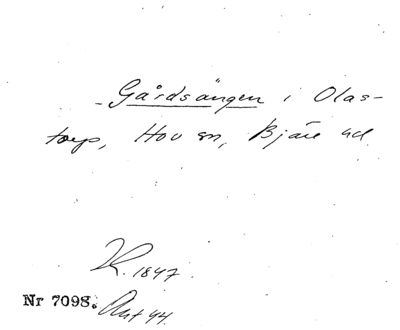 - Gårdsängen i Olas-
torp, Hov sn, Bjäre hd.
K. 1847.
Nr 7098. Akt 44.